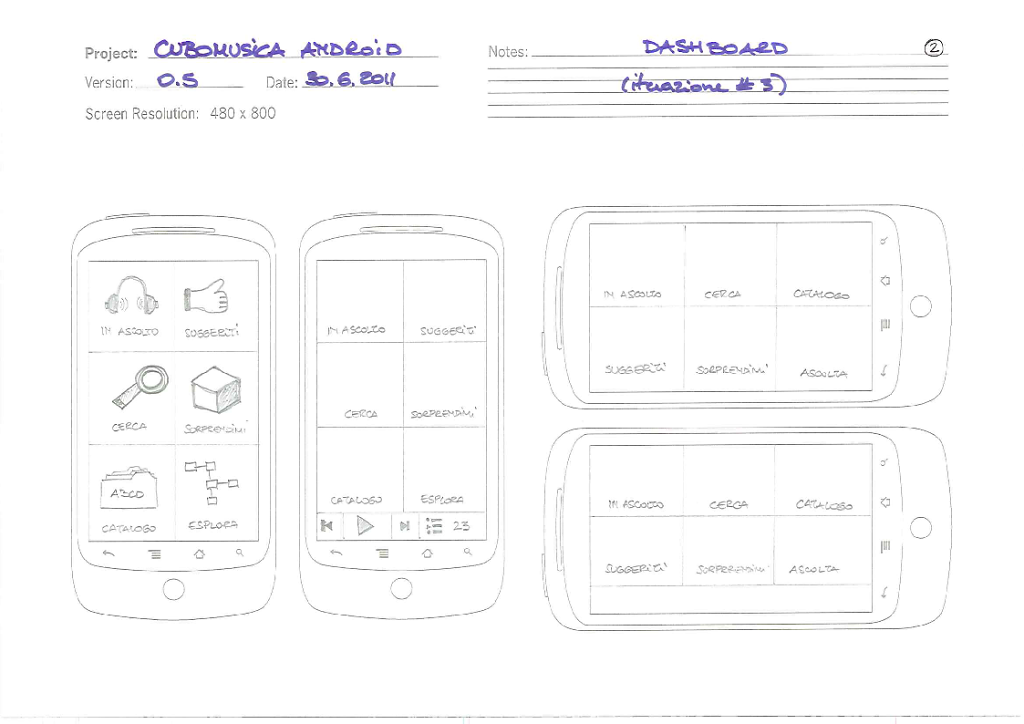 Project: CUBOMUSICA ANDROID
Notes: DASHBOARD
2
Version: 0.5 Date: 30.6.2011
(iterazione # 3)
Screen Resolution: 480 x 800
IN ASCOLTO SUGGERITI
CERCA SORPRENDIMI
ABCD
CATALOGO ESPLORA
IN ASCOLTO SUGGERITI
CERCA SORPRENDIMI
CATALOGO ESPLORA
23
IN ASCOLTO CERCA CATALOGO
SUGGERITI SORPRENDIMI ASCOLTA
IN ASCOLTO CERCA CATALOGO
SUGGERITI SORPRENDIMI ASCOLTA